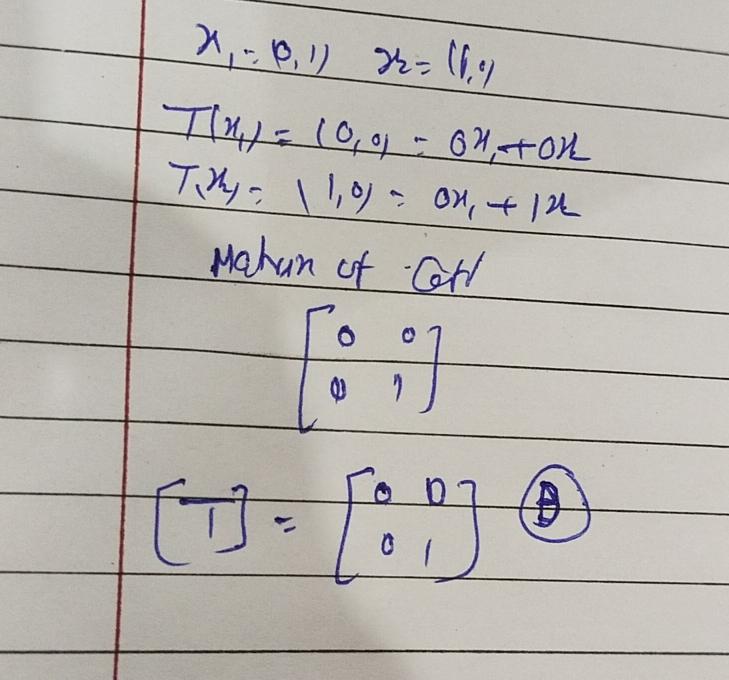 x₁ = (0,1) x₂ = (1,0)
T(x₁) = (0,0) = 0x₁ + 0x₂
T(x₂) = (1,0) = 0x₁ + 1x₂
Matrix of
[0 0
0 1]
[T] = [0 0
0 1] B